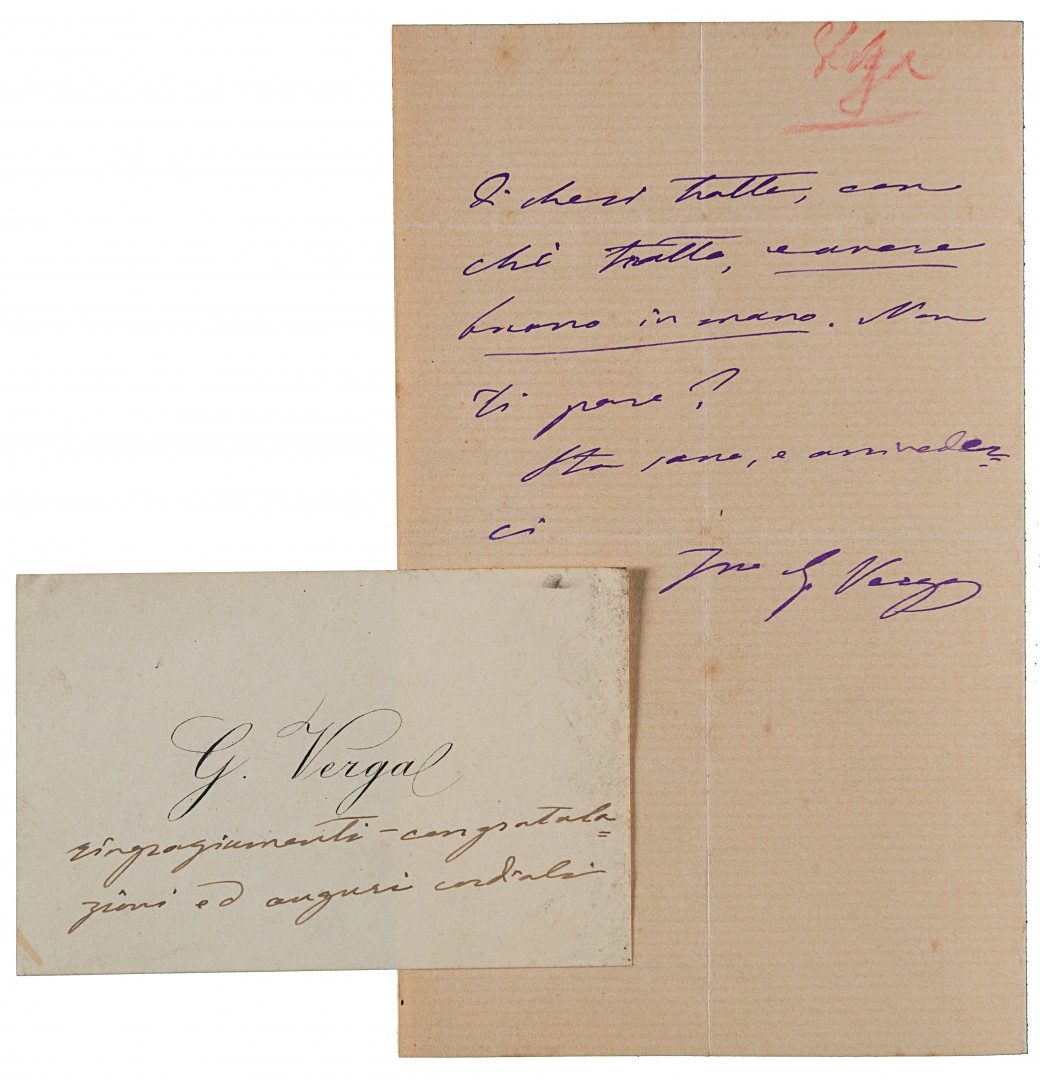 Verga
di che si tratta, con
chi tratto, e avere
buono in mano. Non
ti pare?
Sta sano, e arriveder=
ci
Tuo G. Verga
G. Verga
ringraziamenti - congratula=
zioni ed auguri cordiali